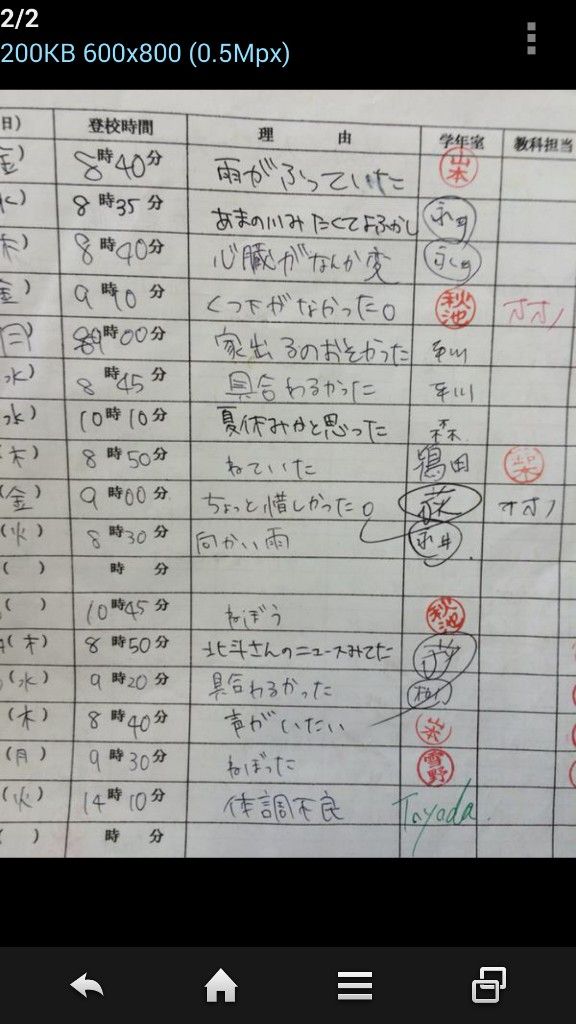 2/2
200KB 600x800 (0.5Mpx)
日) 登校時間 理 由 学年室 教科担当
金) 8時40分 雨がふっていた 山本
水) 8時35分 あまの川みたくてよふかし
木) 8時40分 心臓がなんか変
金) 9時10分 くつ下がなかった。 秋池 オオノ
月) 8時00分 家出るのおそかった 平川
水) 8時45分 具合わるかった 平川
(水) 10時10分 夏休みかと思った 森
(木) 8時50分 ねていた 鶴田
(金) 9時00分 ちょっと惜しかった。 オオノ
(火) 8時30分 向かい雨 永井
( ) 時 分
( ) 10時45分 ねぼう 秋池
(木) 8時50分 北斗さんのニュースみてた
(水) 9時20分 具合わるかった
(木) 8時40分 声がいたい
(月) 9時30分 ねぼった 雪野
(火) 14時10分 体調不良 Toyoda
( ) 時 分